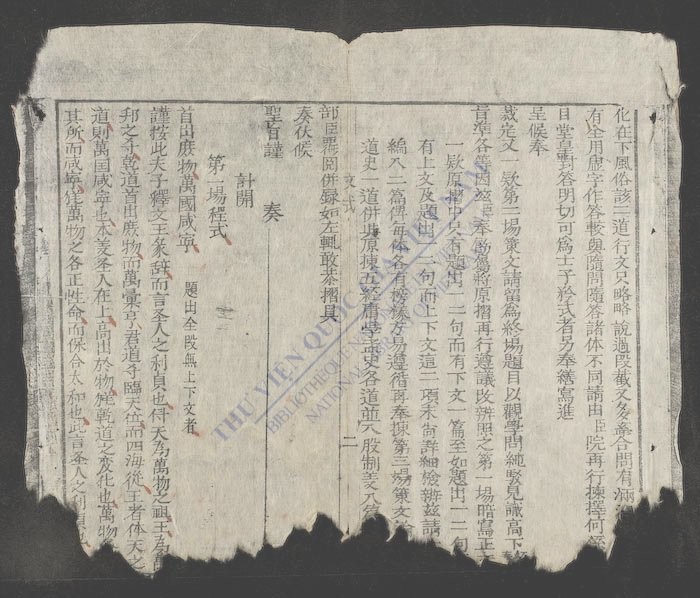 化在下風俗該二道行文只略略說過段截又多牽合問有滿
有全用虛字作答較與隨問隨答諸体不同請由臣院再行揀擇何
日堂皇對答明切可爲士子矜式者另奉繕寫進
呈候奉
裁定又一欵第二場策文請留爲終場題目以觀學問純駁見識高下
旨準各等因茲奉飭將原摺再行遵議改辨照之第一場暗寫正
一欵原摺中只有題出一二句而有下文一篇至如題出一二句
有上文及題出一二句而上下文這二項未尚詳細茲請
編入二篇傳每等各有榜樣方易遵循再奉揀第三場策文
道史一道併與原揀五經庸學諸史各道並入股制義八
文式
二
部臣覆閱併錄如左輒敢恭摺具
奏伏候
聖旨謹
奏
計開
第一場程式
首出庶物萬國咸寧
題出全股無上下文者
謹按此夫子釋文王彖辭而言圣人之利貞也件天爲萬物之祖王爲萬
邦之宗乾道首出庶物而萬彙亨君道尊臨天位而四海從王者体天之
道則萬国咸寧也本义圣人在上高出於物猶乾道之变化也萬
其所而咸寧猶萬物之各正性命而保合太和也此言圣人之利貞
THƯ VIỆN QUỐC GIA VIỆT NAM
BIBLIOTHEQUE NATIONALE DU VIETNAM
NATIONAL LIBRARY OF VIETNAM